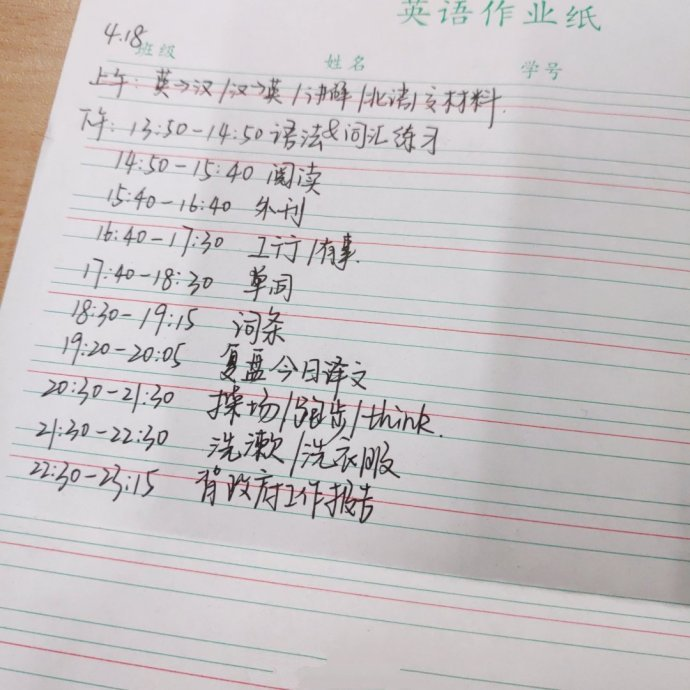 英语作业纸
4.18
班级 姓名 学号
上午: 英→汉/汉→英/讲解/北语/文材料.
下午: 13:50-14:50 语法&词汇练习
14:50-15:40 阅读
15:40-16:40 外刊
16:40-17:30 工行/有事.
17:40-18:30 单词
18:30-19:15 词条
19:20-20:05 复盘今日译文
20:30-21:30 操场/跑步/think.
21:30-22:30 洗漱/洗衣服
22:30-23:15 背政府工作报告